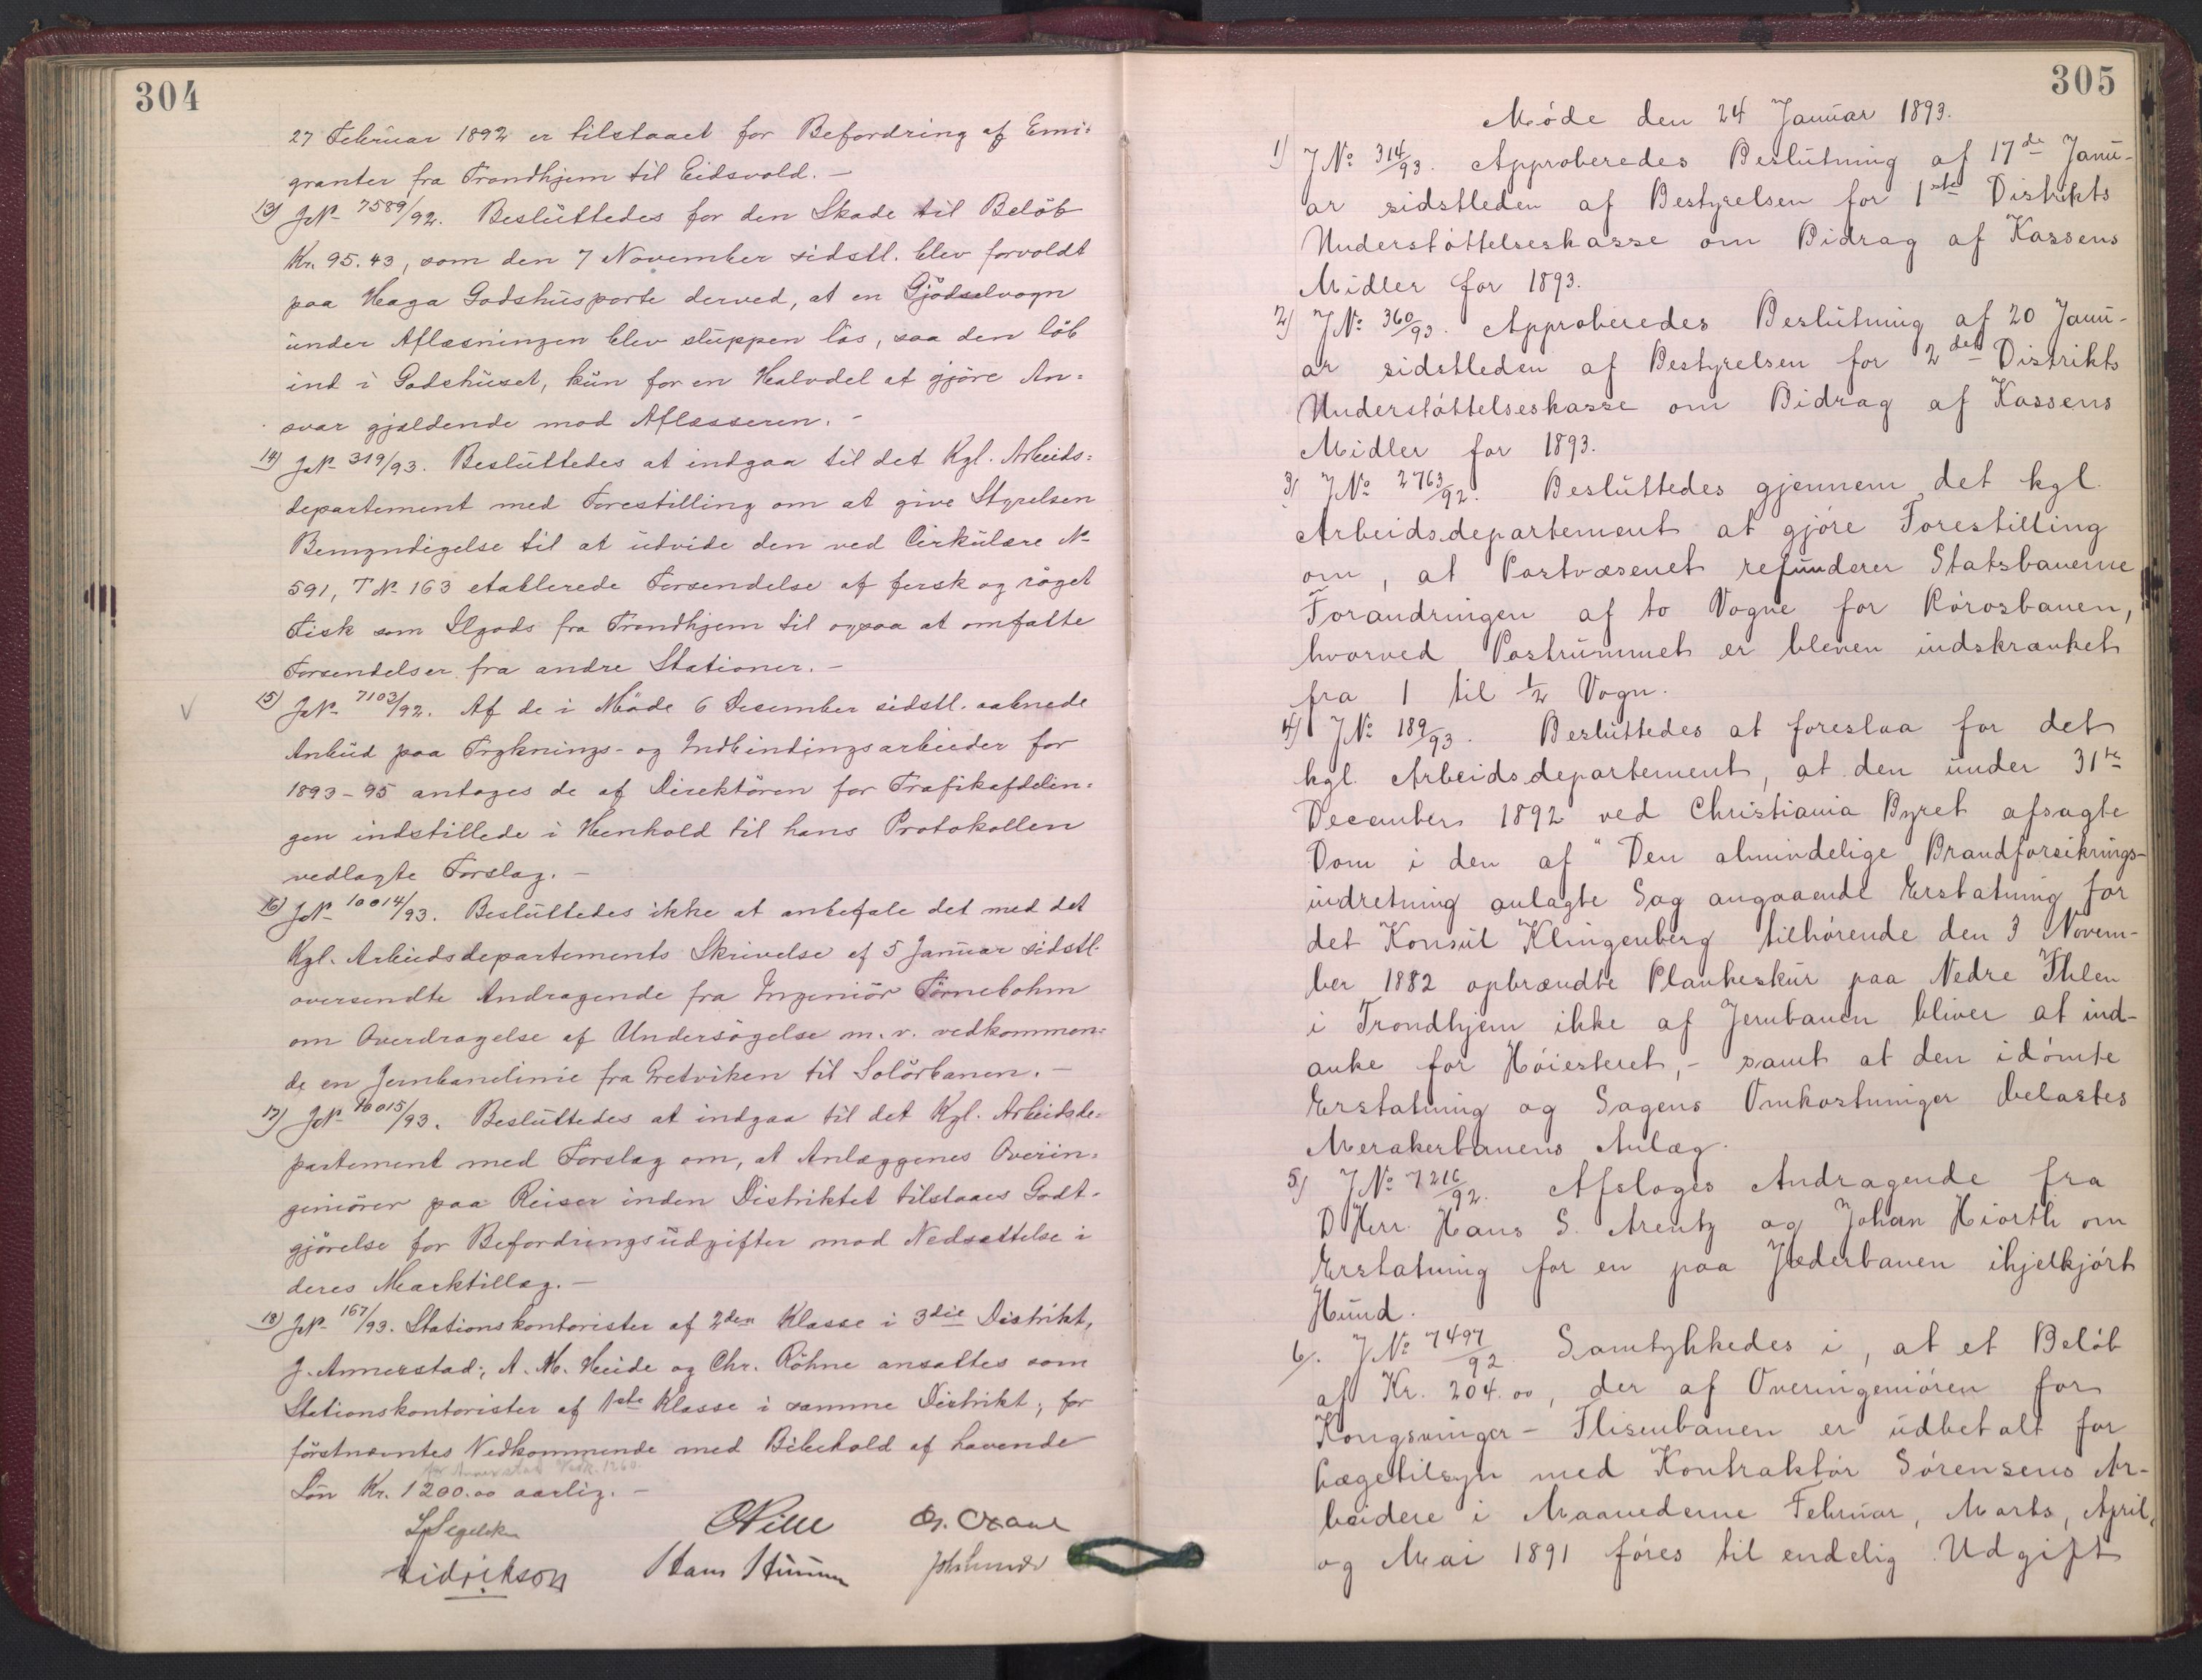 304
27 Februar 1892 er tilstaaet for Befordring af Emi-
granter fra Trondhjem til Eidsvold. -
13) JN. 7589/92. Besluttedes for den Skade til Beløb
Kr. 95.43, som den 7 November sidstl. blev forvoldt
paa Haga Godshusporte derved, at en Gjødselvogn
under Aflæsningen blev sluppen løs, saa den løb
ind i Godshuset, kun for en Halvdel at gjøre An-
svar gjældende mod Aflæsseren. -
14) JN. 319/93. Besluttedes at indgaa til det Kgl. Arbeids-
departement med Forestilling om at give Styrelsen
Bemyndigelse til at udvide den ved Cirkulære N.
591, T N. 163 etablerede Forsendelse af fersk og røget
Fisk som Ilgods fra Trondhjem til ogsaa at omfatte
Forsendelser fra andre Stationer. -
15) JN. 7103/92. Af de i Møde 6 Desember sidstl. aabnede
Anbud paa Tryknings- og Indbindingsarbeider for
1893-95 antages de af Direktøren for Trafikafdelin-
gen indstillede i Henhold til hans Protokollen
vedlagte Forslag. -
16) JN. 10014/93. Besluttedes ikke at anbefale det med det
Kgl. Arbeidsdepartements Skrivelse af 5 Januar sidstl.
oversendte Andragende fra Ingeniør Törnebohm
om Overdragelse af Undersøgelse m. v. vedkommen-
de en Jernbanelinie fra Gretviken til Solørbanen. -
17) JN. 10015/93. Besluttedes at indgaa til det Kgl. Arbeidsde-
partement med Forslag om, at Anlæggenes Overin-
geniører paa Reiser inden Distriktet tilstaaes Godt-
gjørelse for Befordringsudgifter mod Nedsættelse i
deres Marktillæg. -
18) JN. 167/93. Stationskontorister af 2den Klasse i 3die Distrikt,
J. Annerstad, A. M. Heide og Chr. Röhne ansattes som
Stationskontorister af 1ste Klasse i samme Distrikt, for
førstnævntes Vedkommende med Bibehold af havende
for Annerstad Vedk. 1260.
Løn Kr. 1200.00 aarlig. -
Segelcke
Pihl
Didrikson
305
Møde den 24 Januar 1893.
1) JNo 314/93. Approberedes Beslutning af 17de Janu-
ar sidstleden af Bestyrelsen for 1ste Distrikts
Understøttelseskasse om Bidrag af Kassens
Midler for 1893.
2) JNo 360/93. Approberedes Beslutning af 20 Janu-
ar sidstleden af Bestyrelsen for 2det Distrikts
Understøttelseskasse om Bidrag af Kassens
Midler for 1893.
3) JNo 2763/92. Besluttedes gjennem det kgl.
Arbeidsdepartement at gjøre Forestilling
om, at Postvæsenet refunderer Statsbanerne
Forandringen af to Vogne for Rørosbanen,
hvorved Postrummet er bleven indskrænket
fra 1 til 1/2 Vogn.
4) JNo 189/93. Besluttedes at foreslaa for det
kgl. Arbeidsdepartement, at den under 31te
December 1892 ved Christiania Byret afsagte
Dom i den af "Den almindelige Brandforsikrings-
indretning anlagte Sag angaaende Erstatning for
det Konsul Klingenberg tilhørende den 3 Novem-
ber 1882 opbrændte Plankeskur paa Nedre Ihlen
i Trondhjem ikke af Jernbanen bliver at ind-
anke for Høiesteret, - samt at den idømte
Erstatning og Sagens Omkostninger belastes
Merakerbanens Anlæg.
5) JNo 7216/92. Afsloges Andragende fra
D'Herr. Hans S. Arentz og Johan Hiorth om
Erstatning for en paa Jæderbanen ihjelkjørt
Hund.
6). JNo 7497/92 Samtykkedes i, at et Beløb
af Kr. 204.00, der af Overingeniøren for
Kongsvinger - Flisenbanen er udbetalt for
Lægetilsyn med Kontraktør Sørensens Ar-
beidere i Maanederne Februar, Marts, April,
og Mai 1891 føres til endelig Udgift